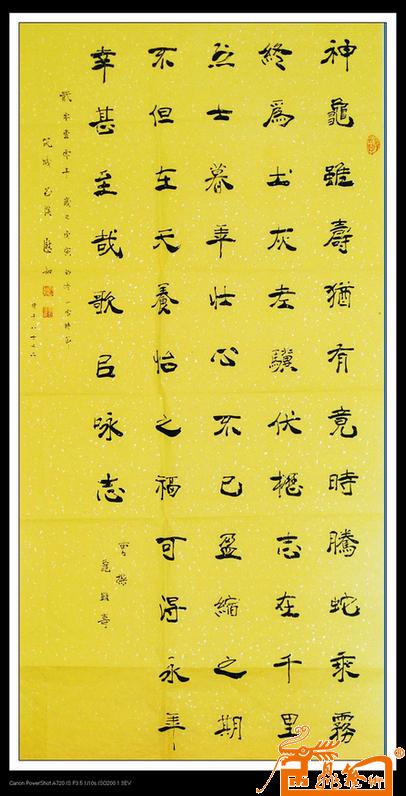 神龜雖壽猶有竟時騰蛇乘霧
終為土灰老驥伏櫪志在千里
烈士暮年壯心不已盈縮之期
不但在天養怡之福可得永年
幸甚至哉歌以咏志
曹操
龜雖壽
Canon PowerShot A720 IS F3.5 1/10s ISO200 1.3EV